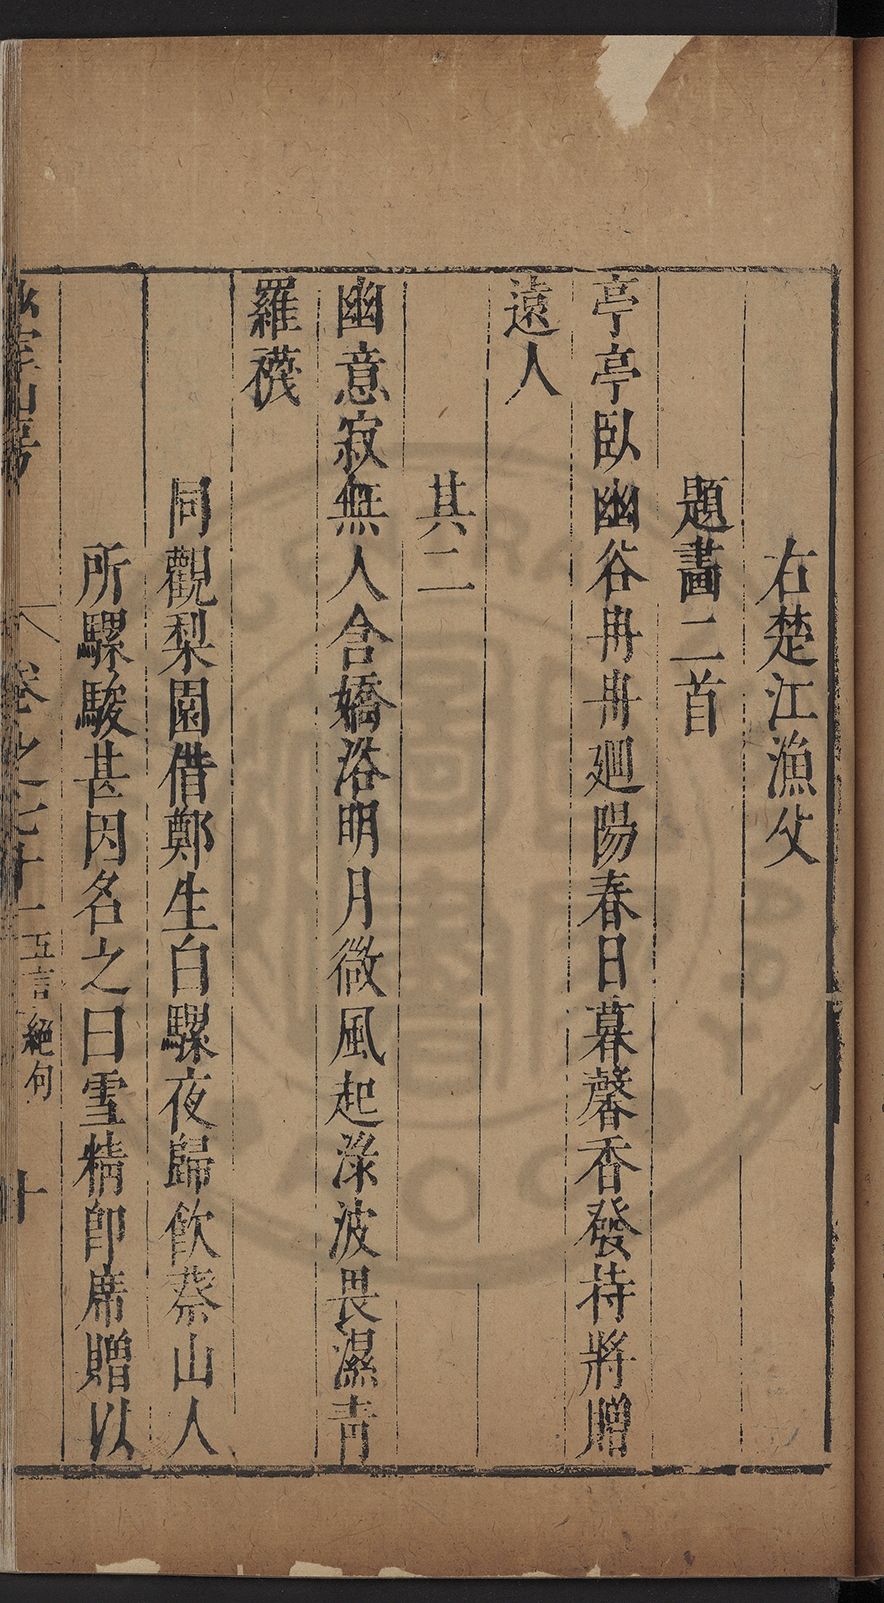 右楚江漁父
題畫二首
亭亭臥幽谷冉冉廻陽春日暮馨香發持將贈
遠人
其二
幽意寂無人含嬌浴明月微風起淥波畏濕青
羅襪
同觀梨園借鄭生白騾夜歸飲蔡山人
所騾駿甚因名之曰雪精卽席贈以
山房
卷之七十一 五言絕句 十